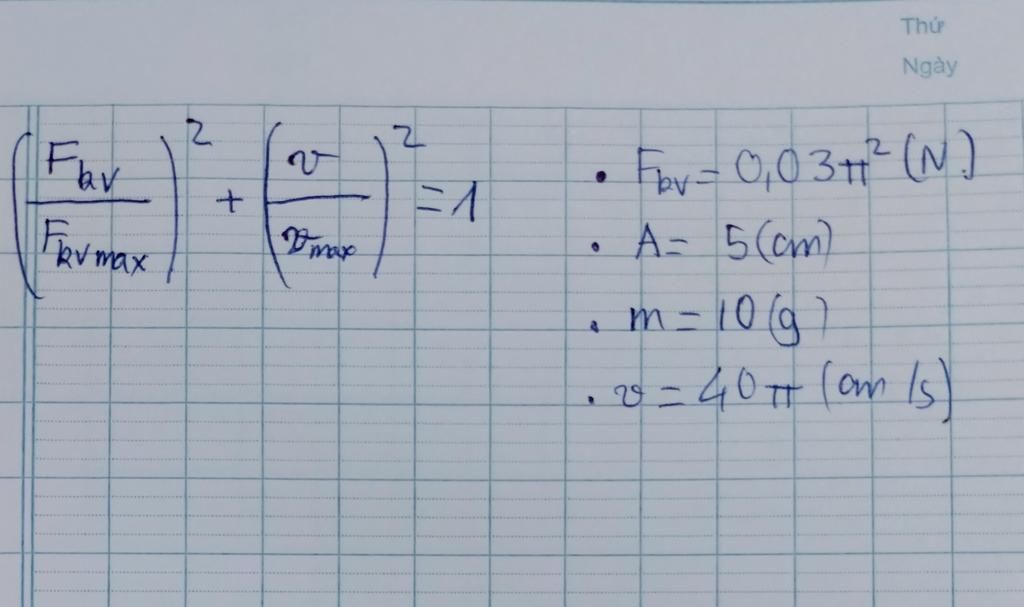 Thứ
Ngày
(F_kv / F_kvmax)² + (v / v_max)² = 1
• F_kv = 0,03π² (N)
• A = 5 (cm)
• m = 10 (g)
• v = 40π (cm/s)